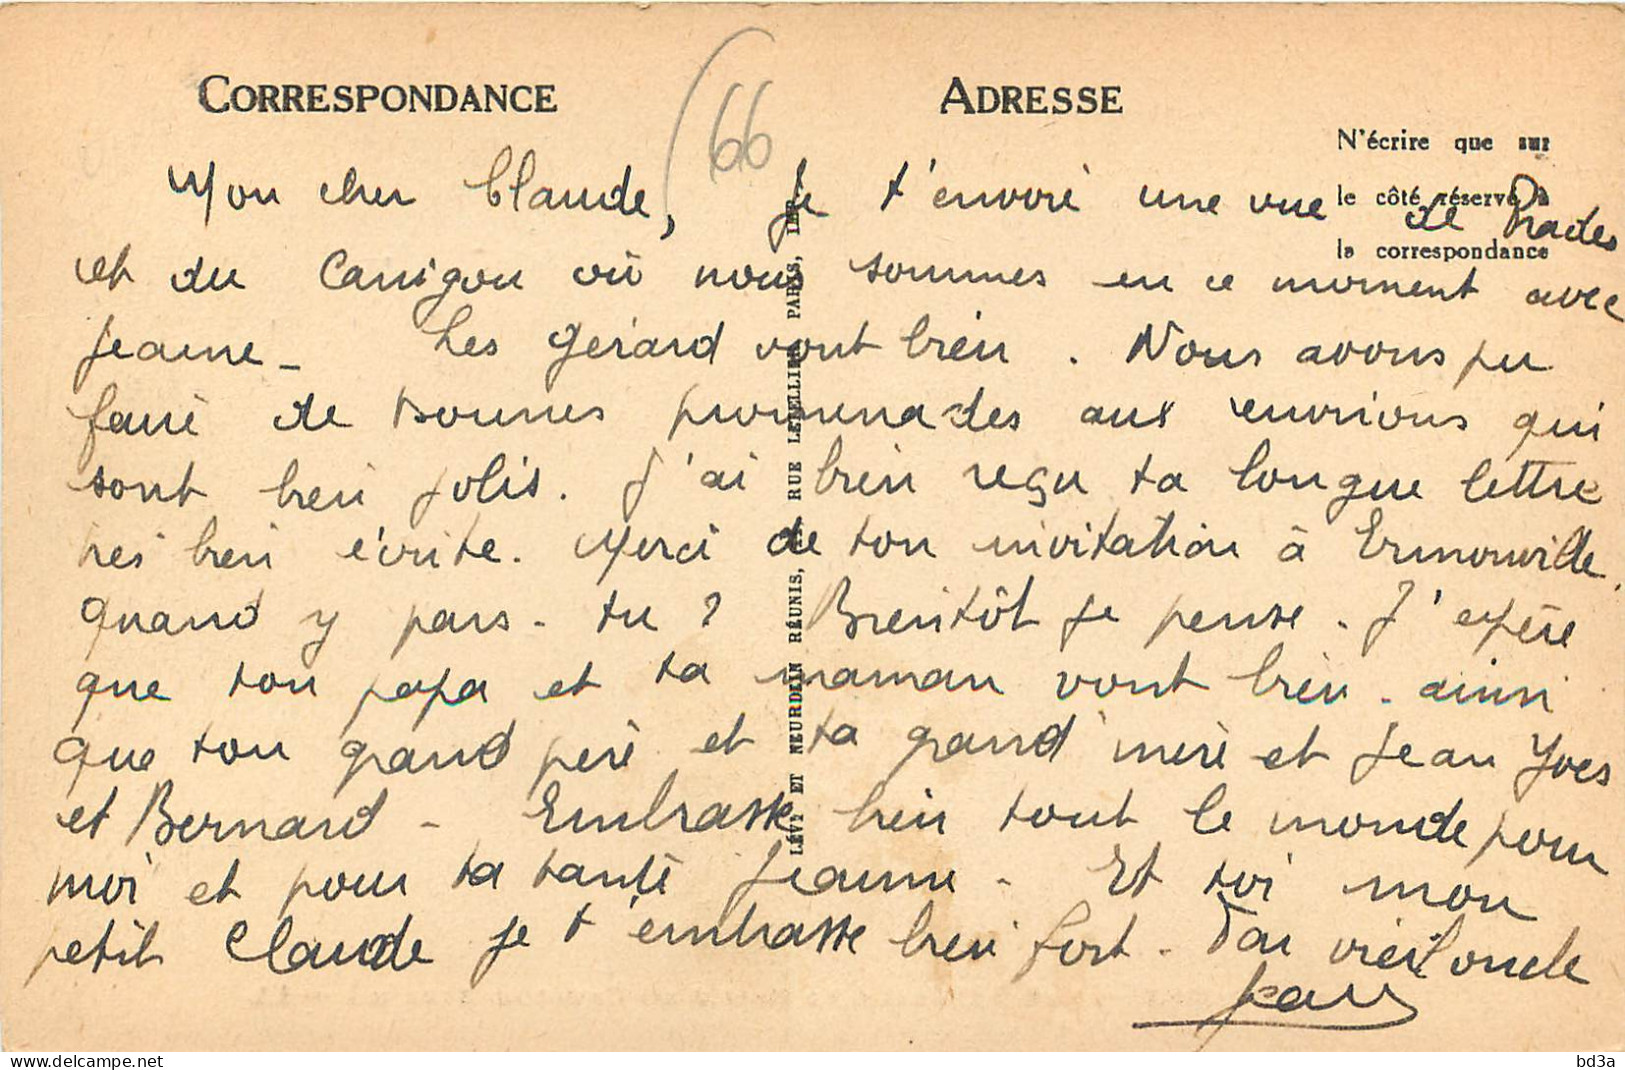 CORRESPONDANCE
ADRESSE
66
N'écrire que sur
le côté réservé à
la correspondance
Mon cher Claude, Je t'envoie une vue de Prades
et du Canigou où nous sommes en ce moment avec
Jeanne - Les Gérard vont bien. Nous avons pu
faire de bonnes promenades aux environs qui
sont bien jolis. J'ai bien reçu ta longue lettre
très bien écrite. Merci de ton invitation à Ermonville.
Quand y pars-tu ? Bientôt je pense. J'espère
que ton papa et ta maman vont bien - ainsi
que ton grand père et ta grand'mère et Jean Yves
et Bernard - Embrasse bien tout le monde pour
moi et pour ta tante Jeanne - Et toi mon
petit Claude je t'embrasse bien fort - Ton vieil oncle
Jean
LÉVY ET NEURDEIN RÉUNIS, RUE LETELLIER, PARIS, IMP.
bd3a